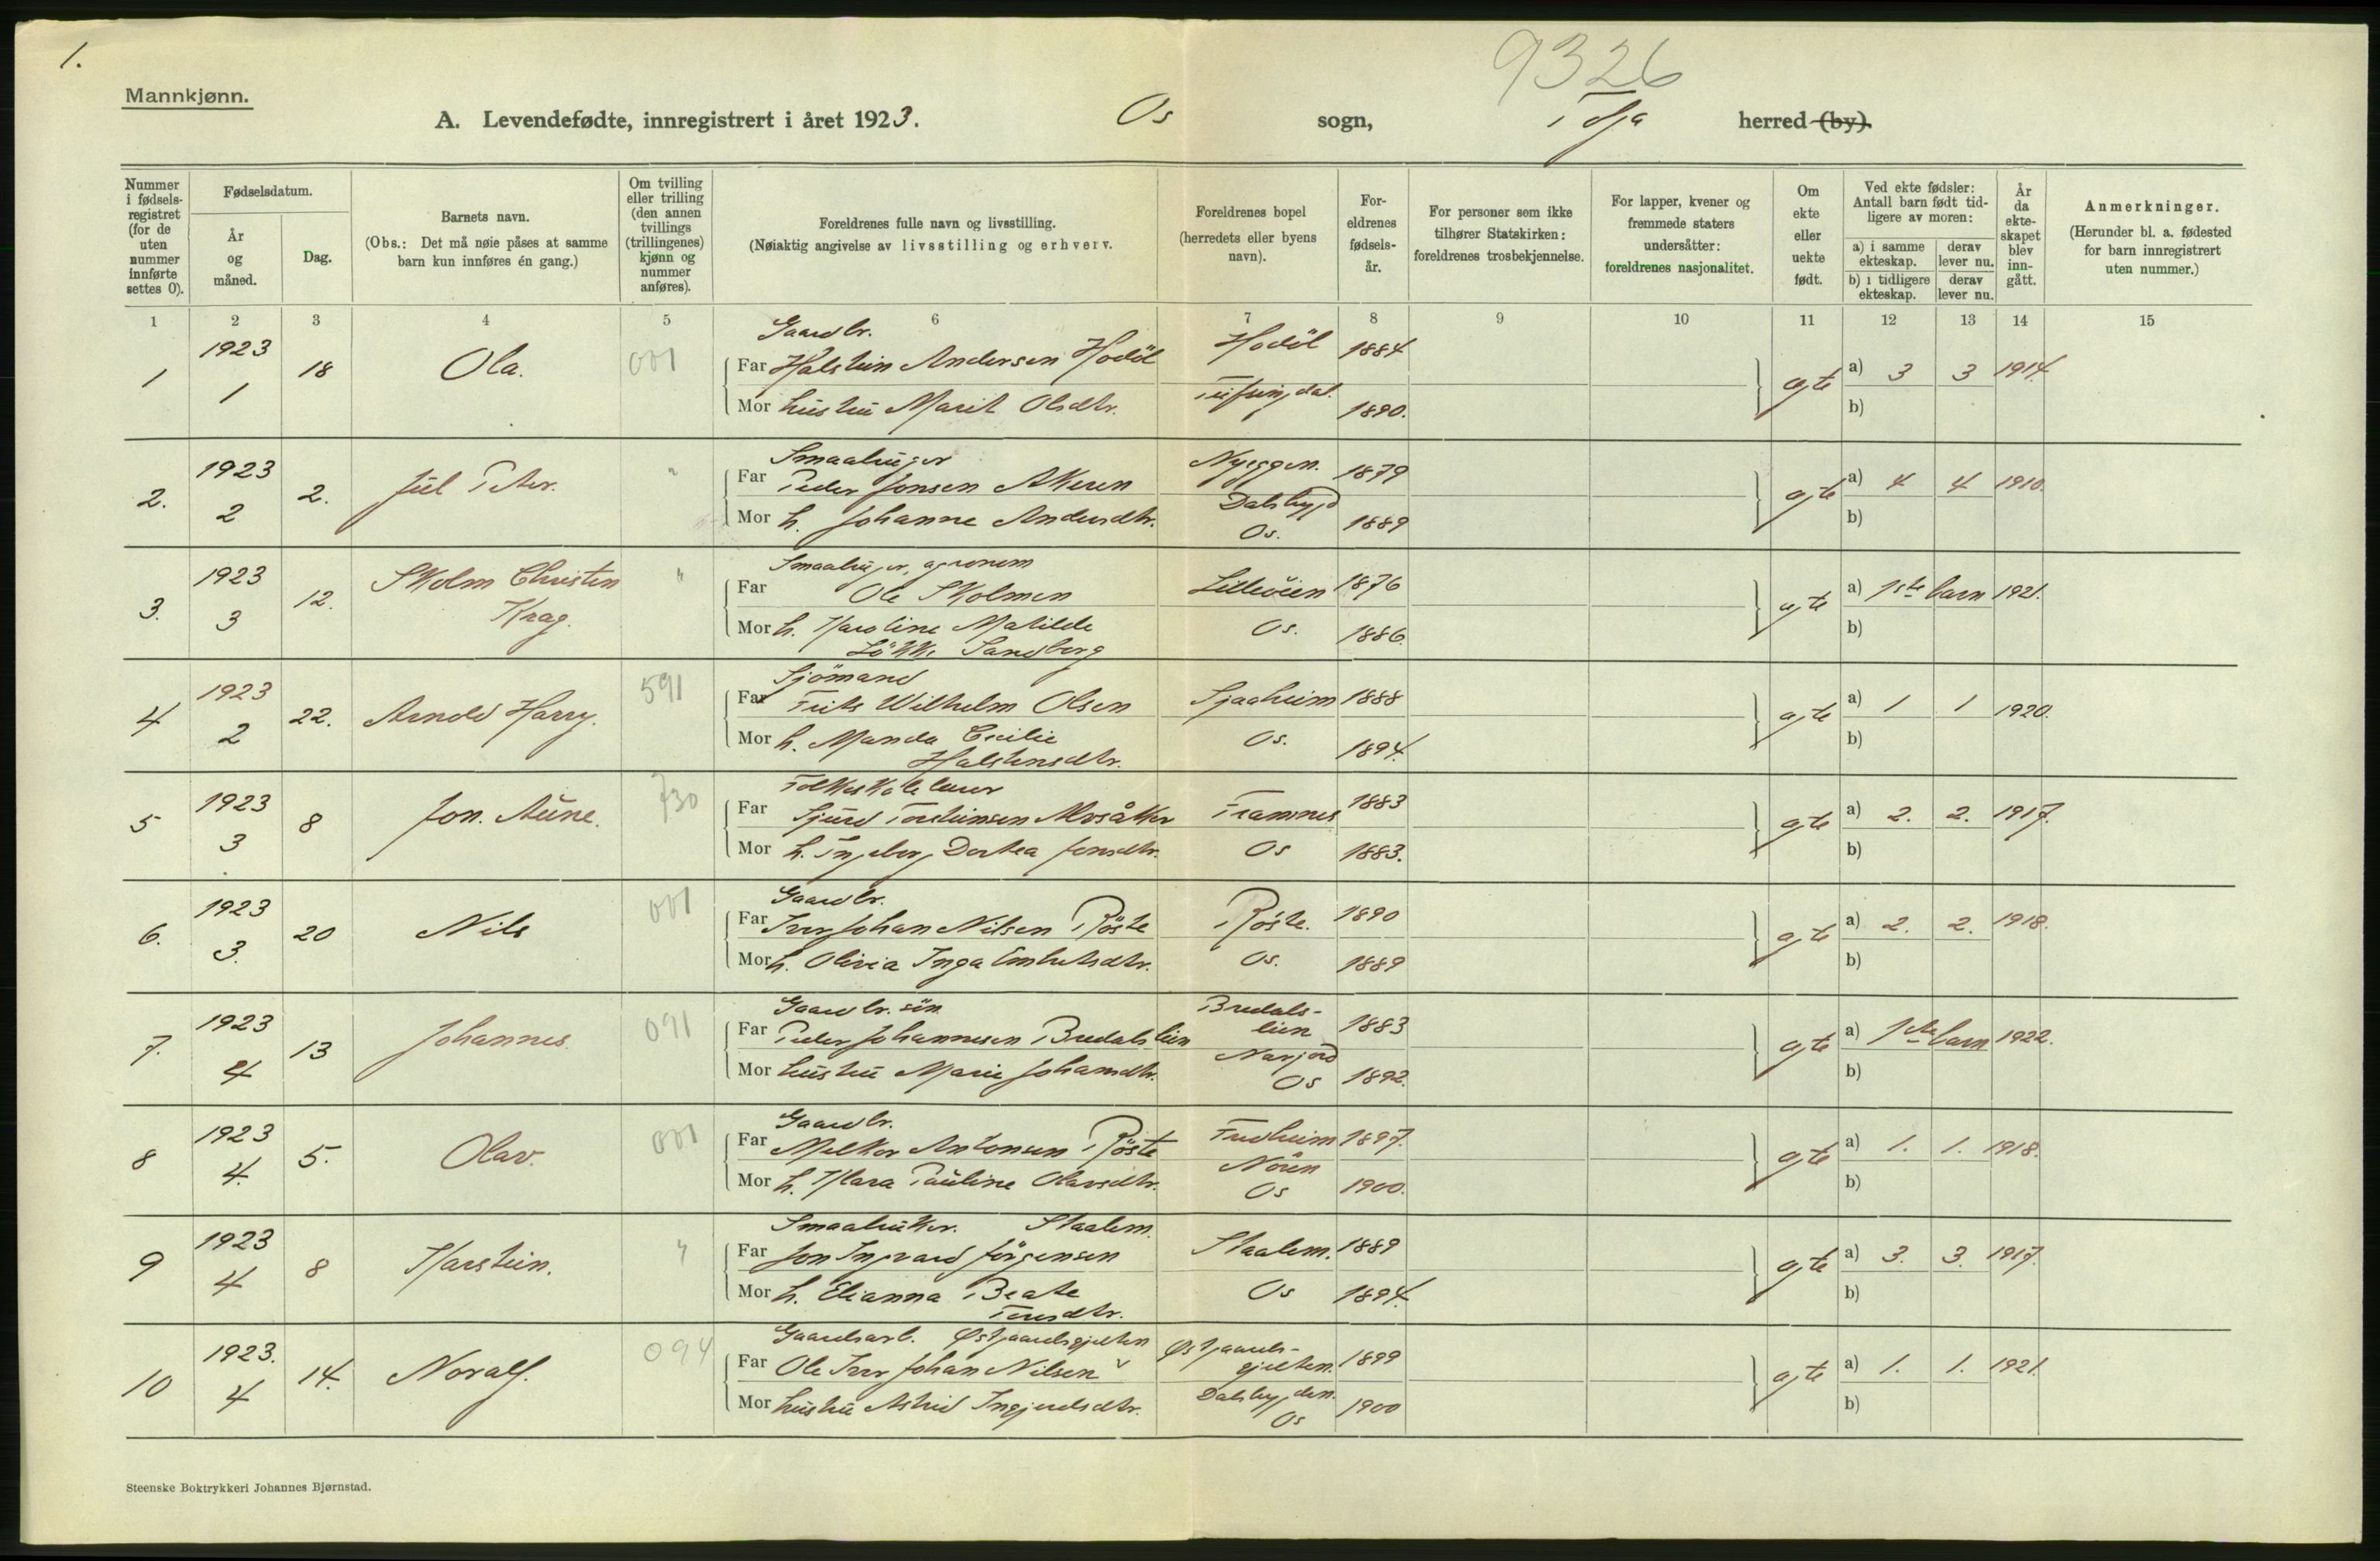 1.
9326
Mannkjønn.
A. Levendefødte, innregistrert i året 1923. Os sogn, herred (by).
Nummer i fødselsregistret (for de uten nummer innførte settes 0).
Fødselsdatum.
År og måned.
Dag.
Barnets navn.
(Obs.: Det må nøie påses at samme barn kun innføres én gang.)
Om tvilling eller trilling (den annen tvillings (trillingenes) kjønn og nummer anføres).
Foreldrenes fulle navn og livsstilling.
(Nøiaktig angivelse av livsstilling og erhverv.
Foreldrenes bopel (herredets eller byens navn).
Foreldrenes fødselsår.
For personer som ikke tilhører Statskirken: foreldrenes trosbekjennelse.
For lapper, kvener og fremmede staters undersåtter: foreldrenes nasjonalitet.
Om ekte eller uekte født.
Ved ekte fødsler: Antall barn født tidligere av moren:
a) i samme ekteskap. derav lever nu.
b) i tidligere ekteskap. derav lever nu.
År da ekteskapet blev inngått.
Anmerkninger.
(Herunder bl. a. fødested for barn innregistrert uten nummer.)
1 2 3 4 5 6 7 8 9 10 11 12 13 14 15
Gaardbr.
1 1923 1 18 Ola. 001 Far Halstein Andersen Hodöl Hodöl 1884 a) 3 3 1914.
Mor hustru Marit Olsdtr. Tufsingdal. 1890. b)
Smaabruger
2. 1923 2 2. Jul Peter. " Far Peder Jonsen Akeren Nyeggen. 1879 a) 4 4 1910.
Mor h. Johanne Andersdtr. Dalsbygd Os. 1889 b)
Smaabruger, agronom
3. 1923 3 12. Skolm Christen Krag. " Far Ole Skolmen Lilleöien 1876 a) 1ste barn 1921.
Mor h. Karoline Matilde Lökke Sandberg Os. 1886. b)
Sjömand
4 1923 2 22. Arnold Harry. 591 Far Frits Wilhelm Olsen Sjaaheim 1888 a) 1 1 1920.
Mor h. Manda Cecilie Halstensdtr. Os. 1894. b)
Folkeskolelærer
5 1923 3 8 Jon. Aune. 730 Far Sjurd Torsteinsen Framnes 1883 a) 2. 2. 1917.
Mor h. Ingeborg Dortea Jonsdtr. Os 1883. b)
Gaardbr.
6. 1923 3. 20 Nils 001 Far Iver Johan Nilsen Röste Röste. 1890 a) 2. 2. 1918.
Mor h. Olivia Inga Embretsdtr. Os. 1889 b)
Gaardbr. sön
7. 1923 4 13 Johannes. 091 Far Peder Johannesen Bredalslien Bredalslien 1883 a) 1ste barn 1922.
Mor hustru Marie Johansdtr. Narjord Os 1892. b)
Gaardbr.
8 1923 4. 5. Olav. 001 Far Melkor Antonsen Röste Fredheim 1897. a) 1. 1. 1918.
Mor h. Klara Pauline Olavsdtr. Nören Os 1900. b)
Smaabruker. Staalem.
9 1923 4 8 Karstein. " Far Jon Ingvard Jörgensen Staalem. 1889 a) 3. 3. 1917.
Mor h. Elianna Beate Os 1894. b)
Gaardsarb. Østgaardsgjelten
10 1923. 4 14. Noralf. 094 Far Ole Iver Johan Nilsen Østgaardsgjelten. 1899 a) 1. 1. 1921.
Mor hustru Astrid Ingjerdsdtr. Dalsbygden. Os 1900 b)
Steenske Boktrykkeri Johannes Bjørnstad.